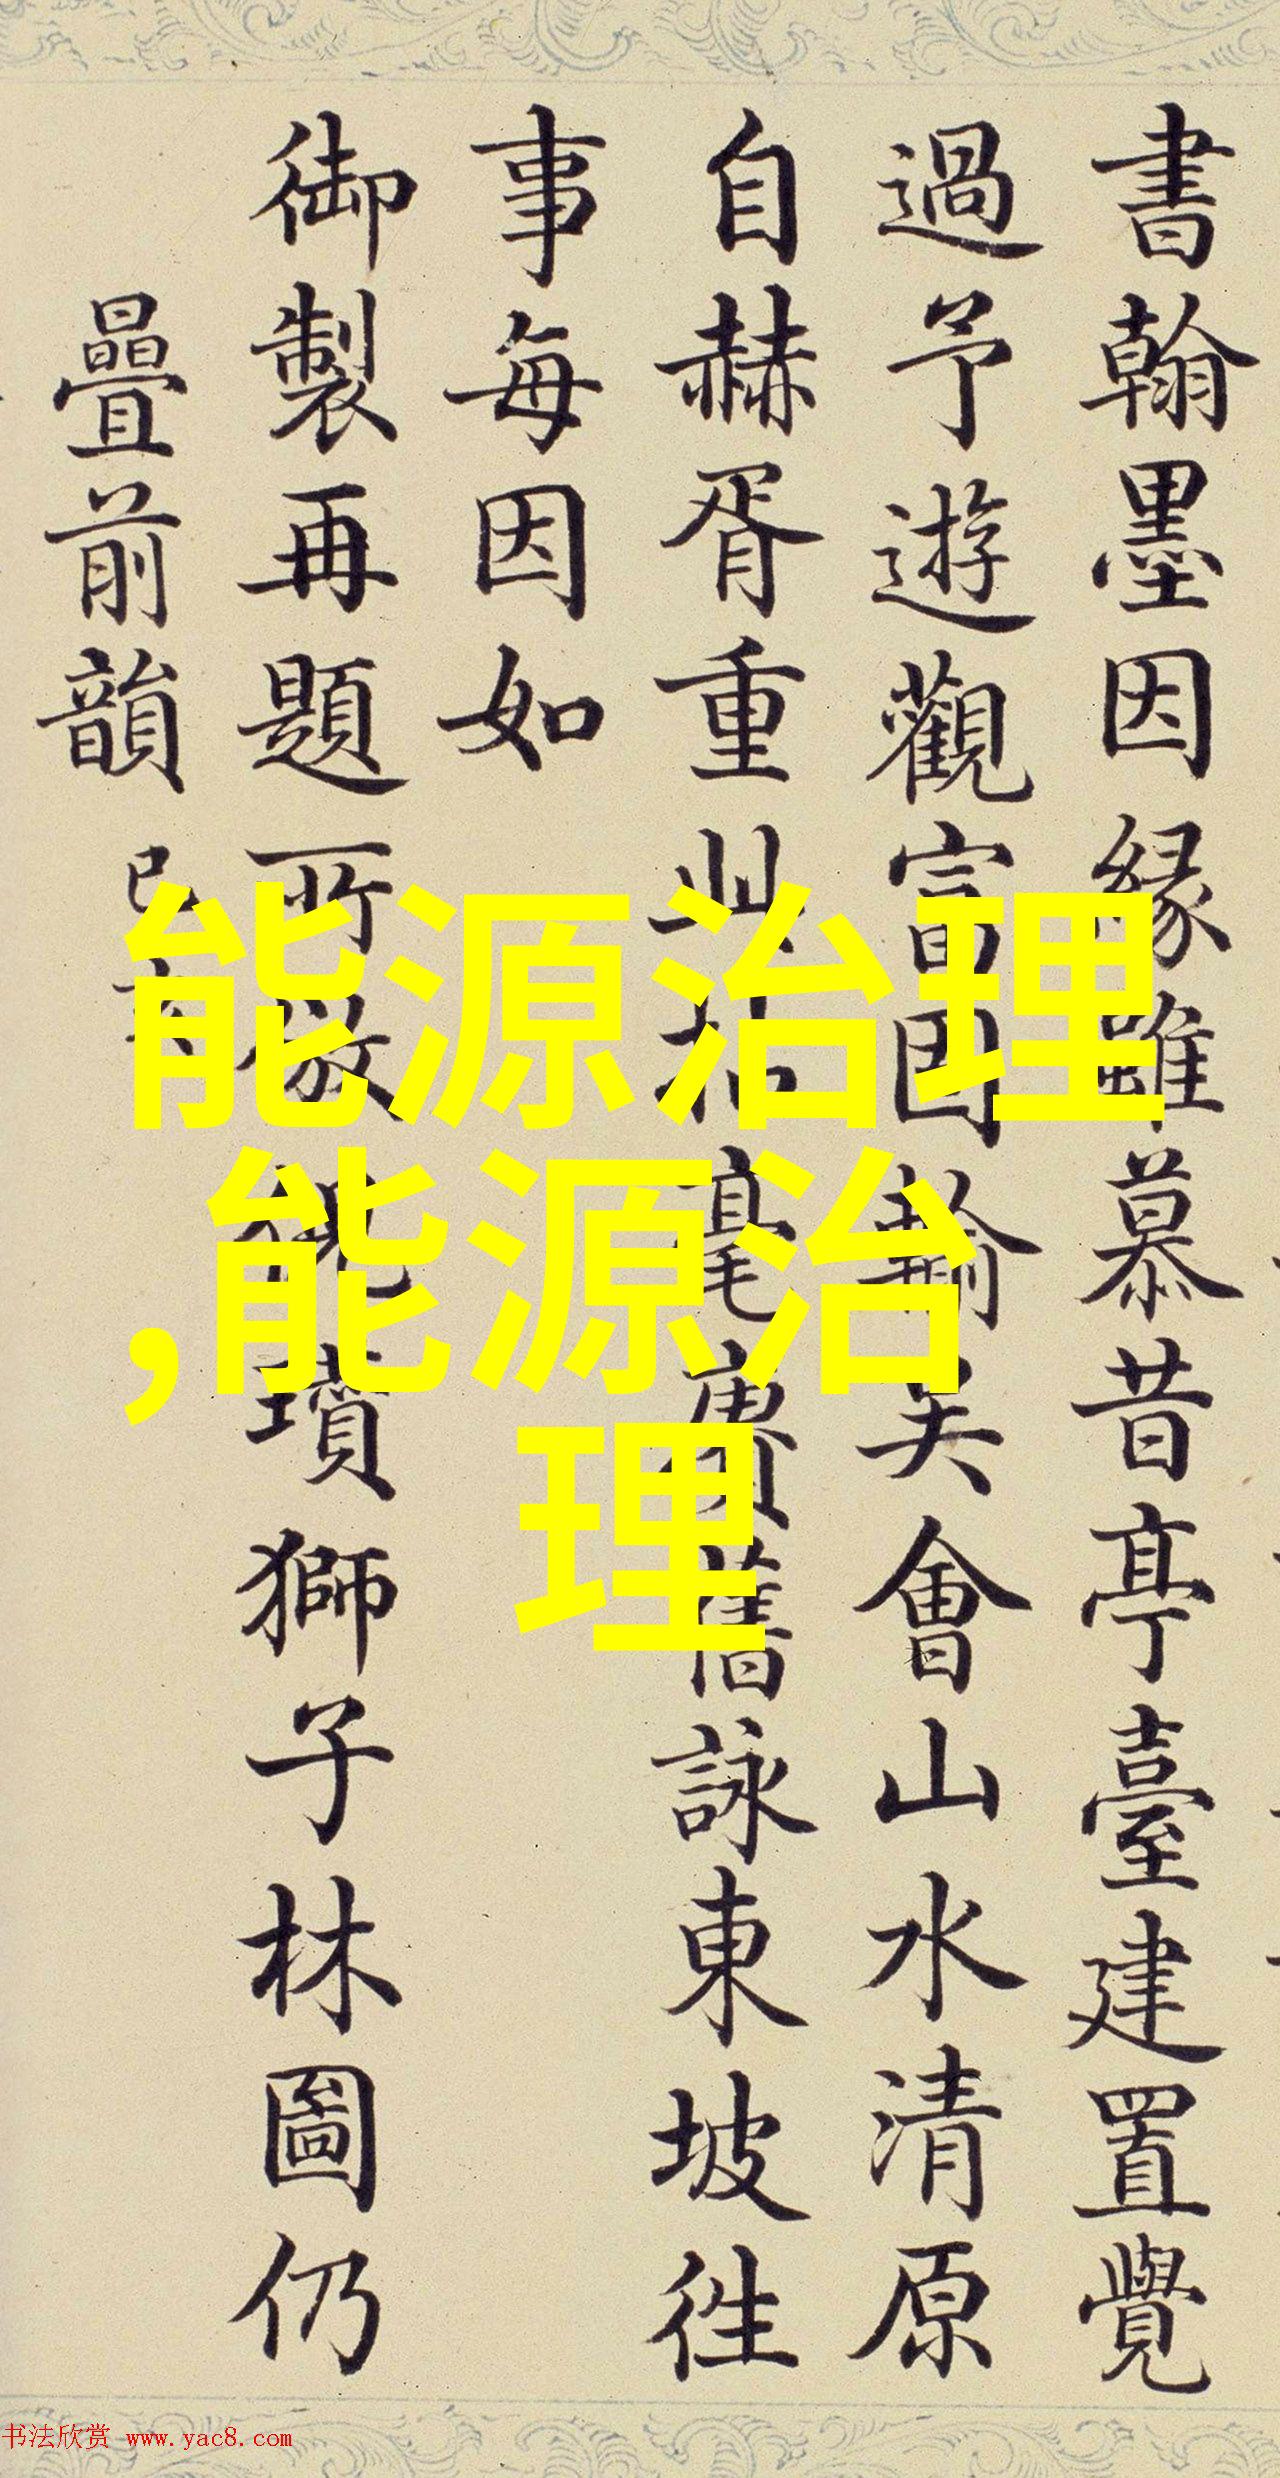 書翰墨因緣雖慕昔亭臺建置覺
過予遊觀富因輸矣會山水清原
自赫胥重此拈毫賡舊詠東坡徃
事每因如
御製再題所倣倪瓚獅子林圖仍
疊前韻
能源治理
,能源治
理
书法欣赏 www.yac8.com